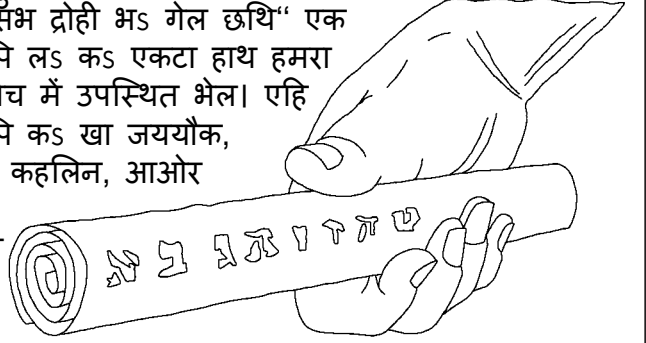 सभ द्रोही भs गेल छथि“ एक
पि लs कs एकटा हाथ हमरा
च में उपस्थित भेल। एहि
पि कs खा जययौक,
कहलिन, आओर